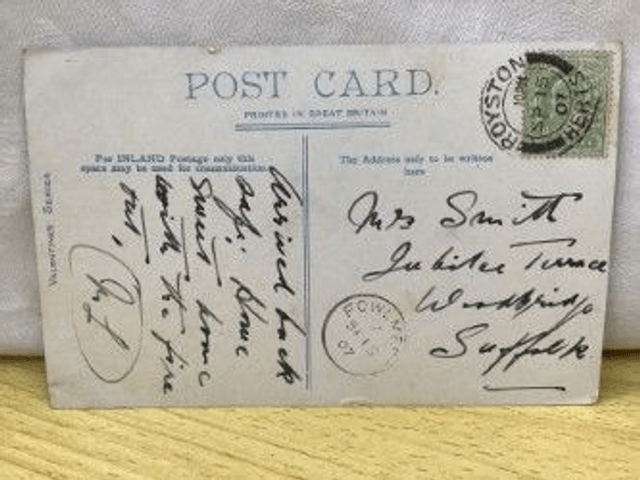 POST CARD.
PRINTED IN GREAT BRITAIN
For INLAND Postage only this
space may be used for communication.
The Address only to be written
here
VALENTINES SERIES
Arrived back
safe. Home
sweet home
with the fire
out,
Mrs Smith
Jubilee Terrace
Woodbridge
Suffolk
ROYSTON
SP 15
07
HERTS
FOWLMERE
SP 15
07